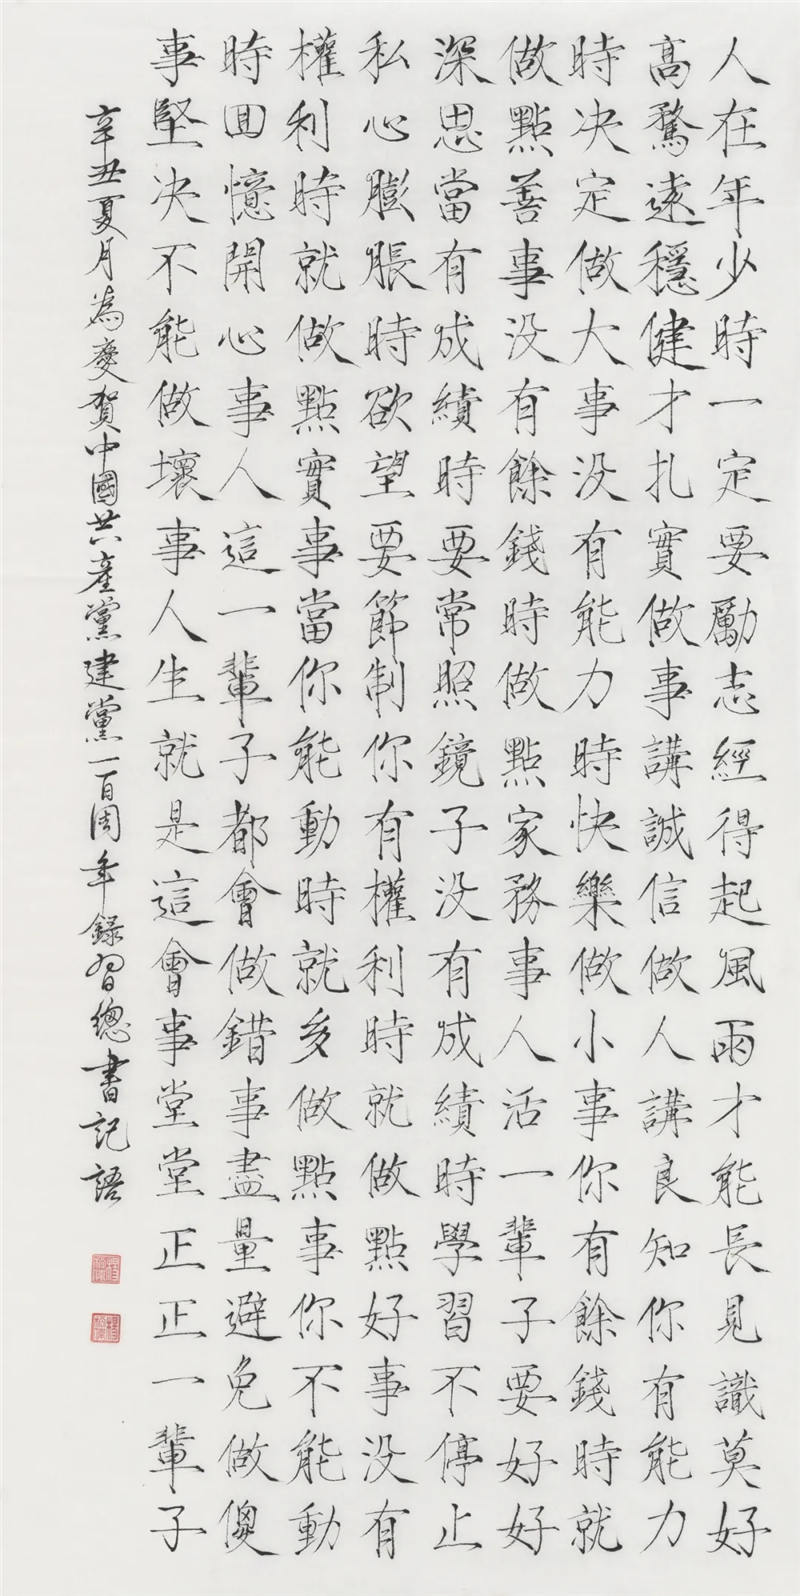 人在年少時一定要勵志經得起風雨才能長見識莫好
高騖遠穩健才扎實做事講誠信做人講良知你有能力
時決定做大事没有能力時快樂做小事你有餘錢時就
做點善事没有餘錢時做點家務事人活一輩子要好好
深思當有成績時要常照鏡子没有成績時學習不停止
私心膨脹時欲望要節制你有權利時就做點好事没有
權利時就做點實事當你能動時就多做點事你不能動
時回憶開心事人這一輩子都會做錯事盡量避免做傻
事堅决不能做壞事人生就是這會事堂堂正正一輩子
辛丑夏月為慶賀中國共產黨建黨一百周年錄習總書記語